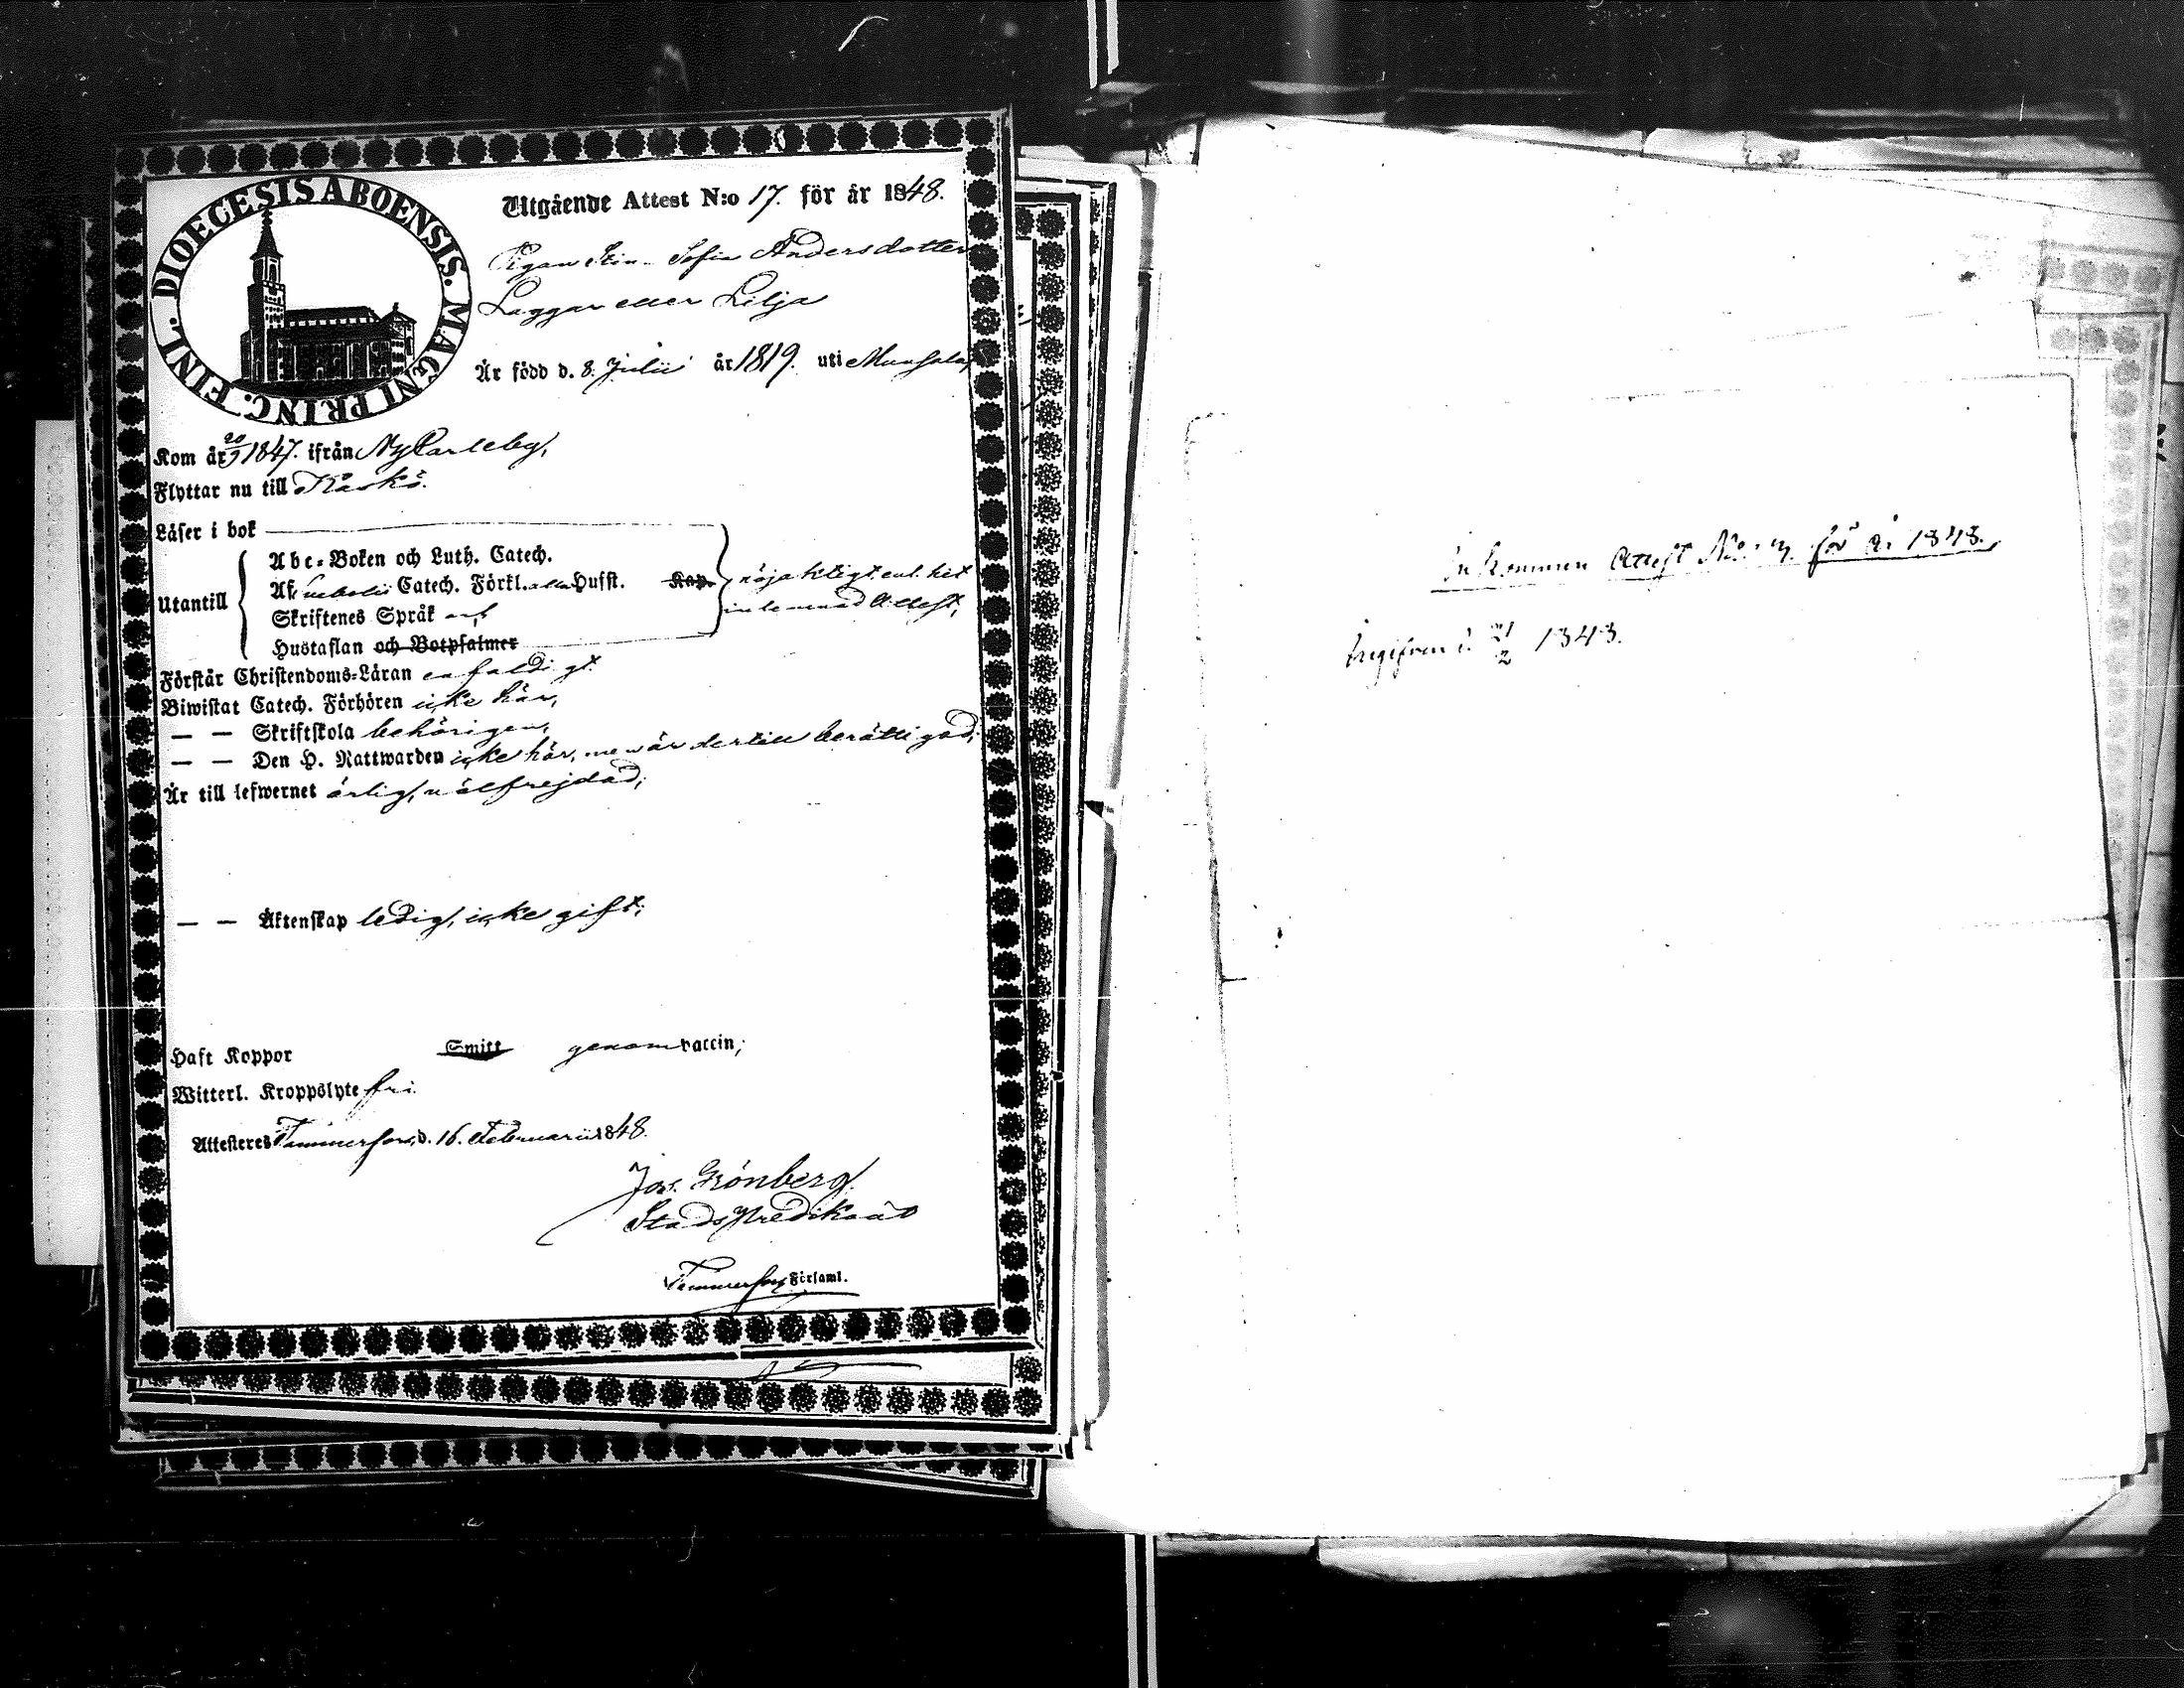 DIOECESIS ABOENSIS. MAGNI PRINC. FINL.
Utgående Attest N:o 17. för år 1848.
Pigan Stina Sofia Andersdotter
Laggar eller Lilja
Är född d. 8. Julii år 1819. uti Munsala,
Kom år 20/9 1847. ifrån NyCarleby,
Flyttar nu till Kaskö.
Läser i bok
Utantill
Abc-Boken och Luth. Catech.
Af Svebelii Catech. Förkl. Husst. Kap.
nöjaktigt enl. hit
inlemnad Attest,
Skriftenes Språk
Hustaflan och Botpsalmer
Förstår Christendoms-Läran enfaldigt.
Biwistat Catech. Förhören icke här,
— — Skriftskola behörigen,
— — Den H. Nattwarden icke här, men är dertill berättigad;
Är till lefwernet ärlig, välfrejdad;
— — Äktenskap ledig, icke gift;
Haft Koppor Smitt genom vaccin;
Witterl. Kroppslyte fri.
Attesteras Tammerfors, d. 16. Februarii 1848.
Jos. Grönberg.
StadsPredikant
Tammerfors Församl.
Inkommen Attest No: för år 1848.
Ingifven d.